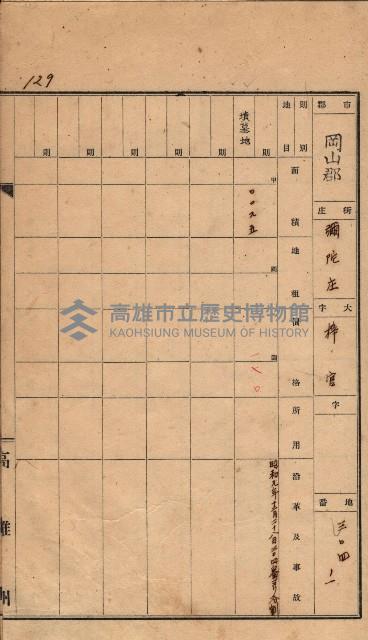 129
市郡
岡山郡
街庄
彌陀庄
大字
梓官
字
地番
三〇四ノ一
則別
地目
面積
地租
價格
所用
沿革及事故
墳墓地
則
則
則
則
則
則
甲
〇〇九五
圓
圓
一、〇
高雄市立歷史博物館
KAOHSIUNG MUSEUM OF HISTORY
高雄州